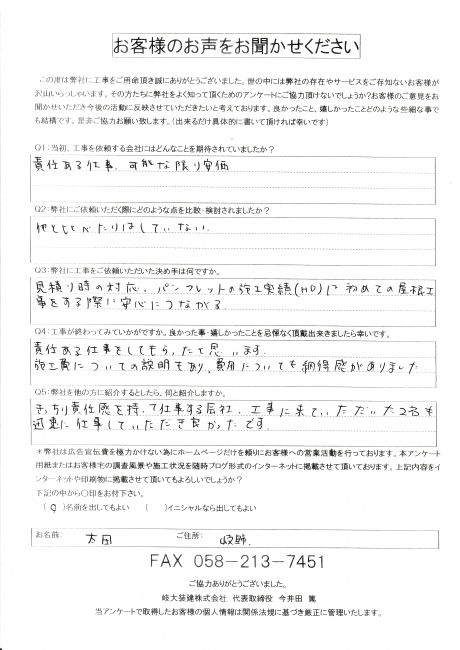 お客様のお声をお聞かせください
この度は弊社に工事をご用命頂き誠にありがとうございました。世の中には弊社の存在やサービスをご存知ないお客様が
沢山いらっしゃいます。その方たちに弊社をよく知って頂くためのアンケートにご協力頂けないでしょうか?お客様のご意見をお
聞かせいただき今後の活動に反映させていただきたいと考えております。良かったこと、嬉しかったことどのような些細な事で
も結構です。是非ご協力お願い致します。(出来るだけ具体的に書いて頂ければ幸いです)
Q1:当初、工事を依頼する会社にはどんなことを期待されていましたか?
責任ある仕事、可能な限り安価
Q2:弊社にご依頼いただく際にどのような点を比較・検討されましたか?
他とくらべたりはしていない
Q3:弊社に工事をご依頼いただいた決め手は何ですか。
見積り時の対応、パンフレットの施工実績(HP)で初めての屋根工
事をする際に安心につながる
Q4:工事が終わってみていかがですか。良かった事・嬉しかったことを忌憚なく頂戴出来ましたら幸いです。
責任ある仕事をしてもらったと思います。
施工費についての説明もあり、費用についても納得感がありました
Q5:弊社を他の方に紹介するとしたら、何と紹介しますか。
きっちり責任感を持って仕事する会社、工事に来ていただいた
迅速に仕事していただき良かったです。
*弊社は広告宣伝費を極力かけない為にホームページだけを頼りにお客様への営業活動を行っております。本アンケート
用紙またはお客様宅の調査風景や施工状況を随時ブログ形式のインターネットに掲載させて頂いております。上記内容をイ
ンターネットや印刷物に掲載させて頂いてもよろしいでしょうか?
下記の中から○印をお付下さい。
(○)名前を出してもよい ( )イニシャルなら出してもよい
お名前: 太田 ご住所: 岐阜
FAX 058-213-7451
ご協力ありがとうございました。
岐大装建株式会社 代表取締役 今井田 篤
当アンケートで取得したお客様の個人情報は関係法規に基づき厳正に管理いたします。